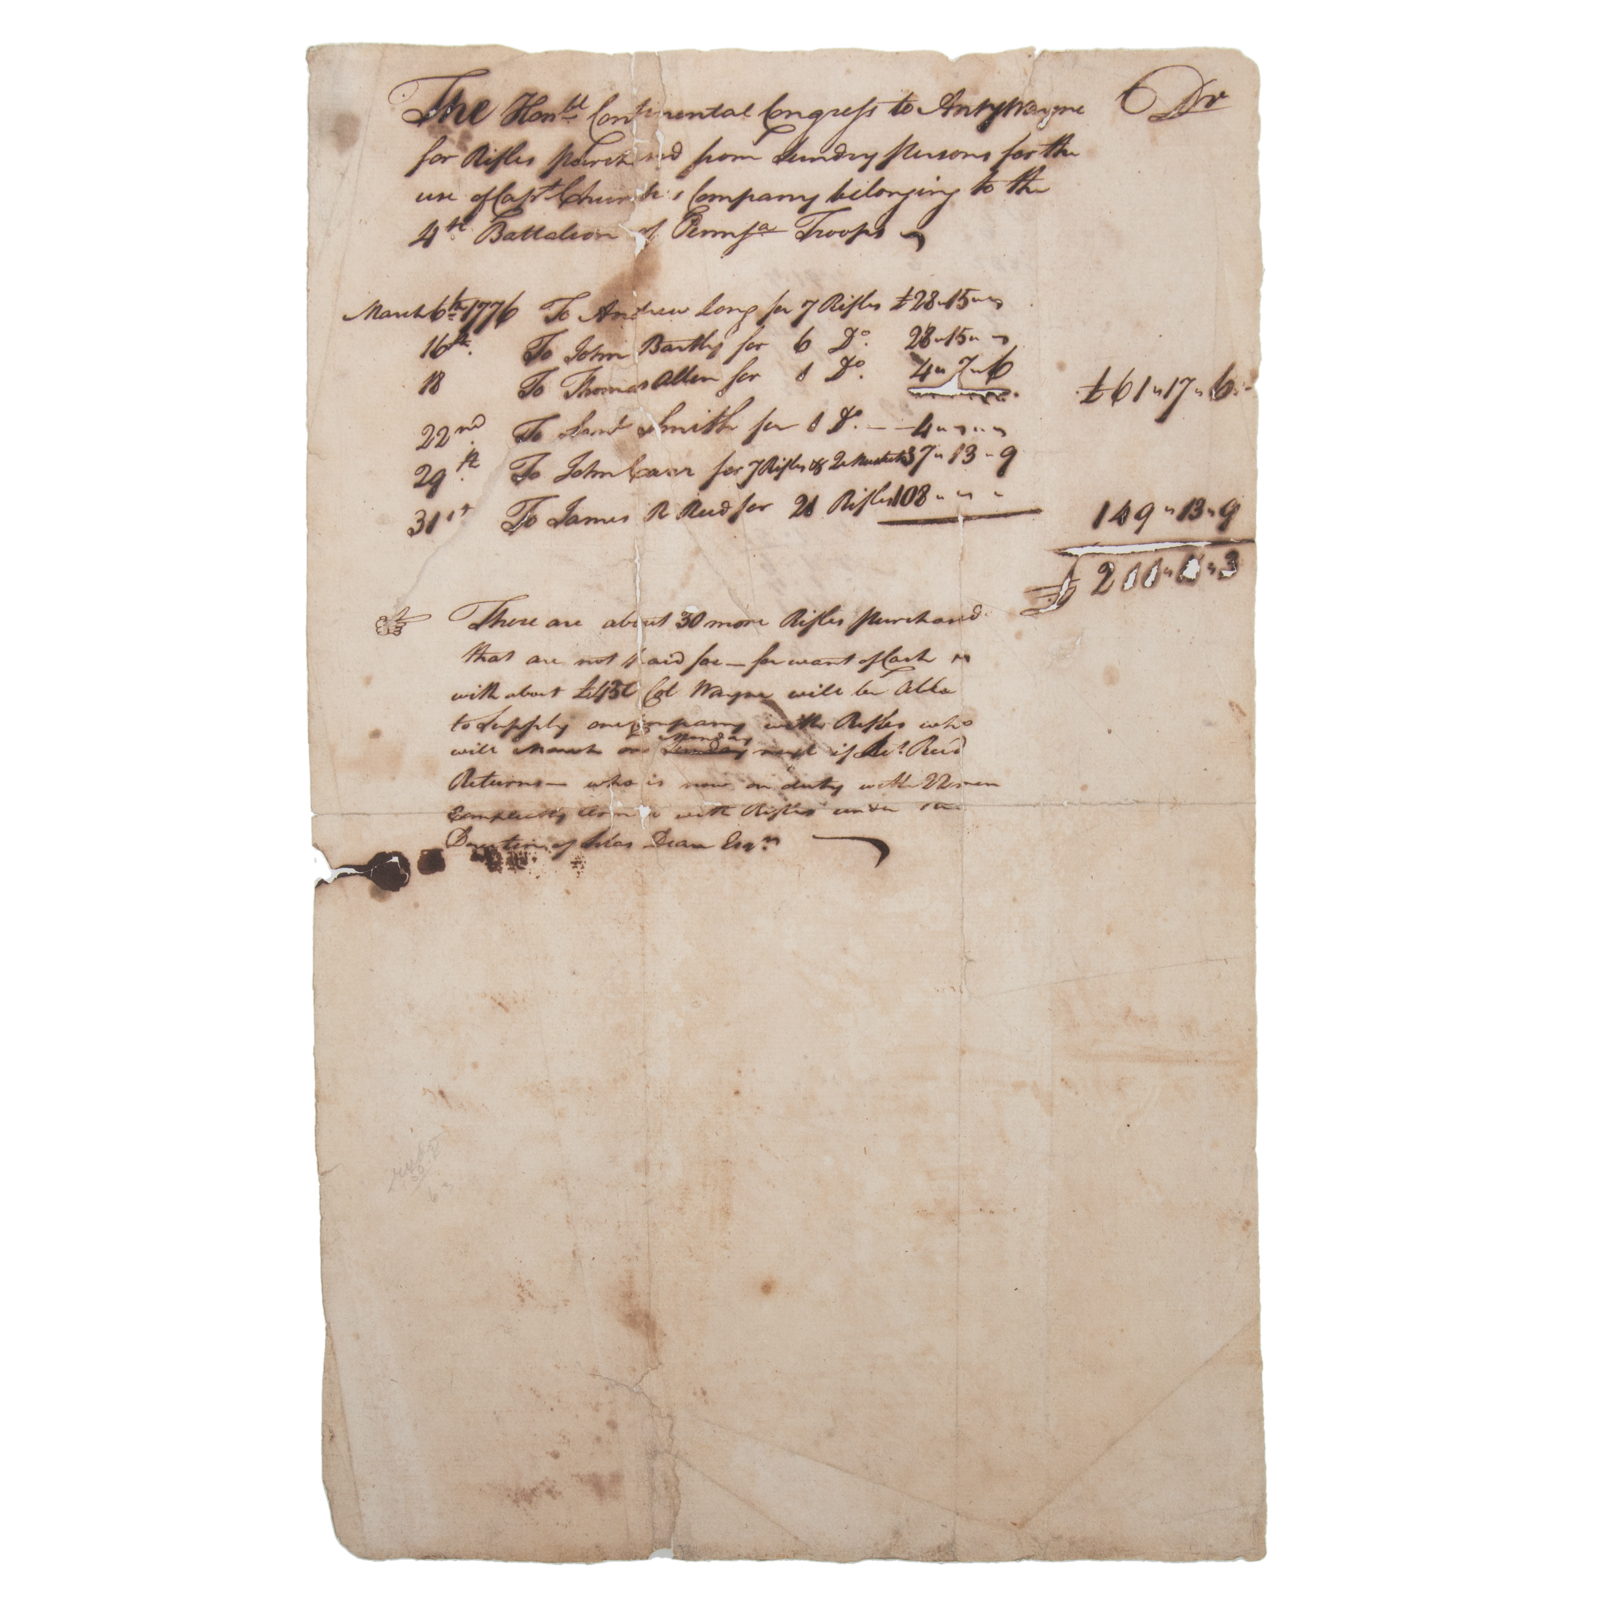 The Honbl Continental Congress to Anty Wayne Dr
for Rifles purchased from Sundry persons for the
use of Capt Church's Company belonging to the
4th Battalion of Pennsa Troops
March 6th 1776 To Andrew Long for 7 Rifles £28〃15〃〃
16th To John Bartly for 6 Do. 28〃15〃〃
18 To Thomas Allen for 1 Do. 4〃7〃6 £61〃17〃6
22nd To Saml Smith for 1 Do. 4〃〃〃
29th To John Carr for 7 Rifles & 2 Muskets 37〃13〃9
31st To James R Reed for 21 Rifles 108〃〃〃 149〃13〃9
£211〃11〃3
☞ There are about 30 more Rifles purchased
that are not paid for — for want of Cash
with about Col Wayne will be Able
to Supply one Company with Rifles who
Monday
will March on Sunday next if Reed
Returns — who is now on duty with men
Compleatly Armed with Rifles under the
Direction of Silas Dean Esqr.